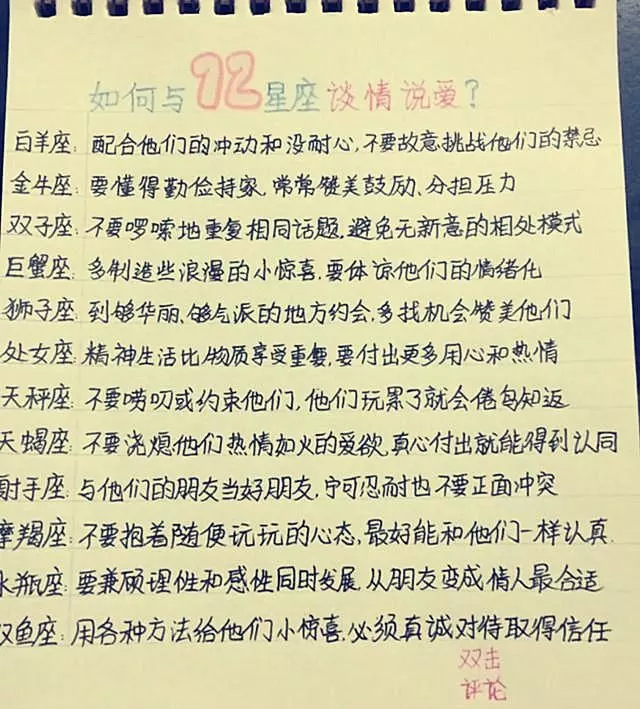 如何与12星座谈情说爱?
白羊座: 配合他们的冲动和没耐心,不要故意挑战他们的禁忌
金牛座: 要懂得勤俭持家,常常赞美鼓励、分担压力
双子座: 不要啰嗦地重复相同话题,避免无新意的相处模式
巨蟹座: 多制造些浪漫的小惊喜,要体谅他们的情绪化
狮子座: 到够华丽、够气派的地方约会,多找机会赞美他们
处女座: 精神生活比物质享受重复,要付出更多用心和热情
天秤座: 不要唠叨或约束他们,他们玩累了就会倦鸟知返
天蝎座: 不要浇熄他们热情如火的爱欲,真心付出就能得到认同
射手座: 与他们的朋友当好朋友,宁可忍耐也不要正面冲突
摩羯座: 不要抱着随便玩玩的心态,最好能和他们一样认真.
水瓶座: 要兼顾理性和感性同时发展,从朋友变成情人最合适
双鱼座: 用各种方法给他们小惊喜,必须真诚对待取得信任
双击
评论